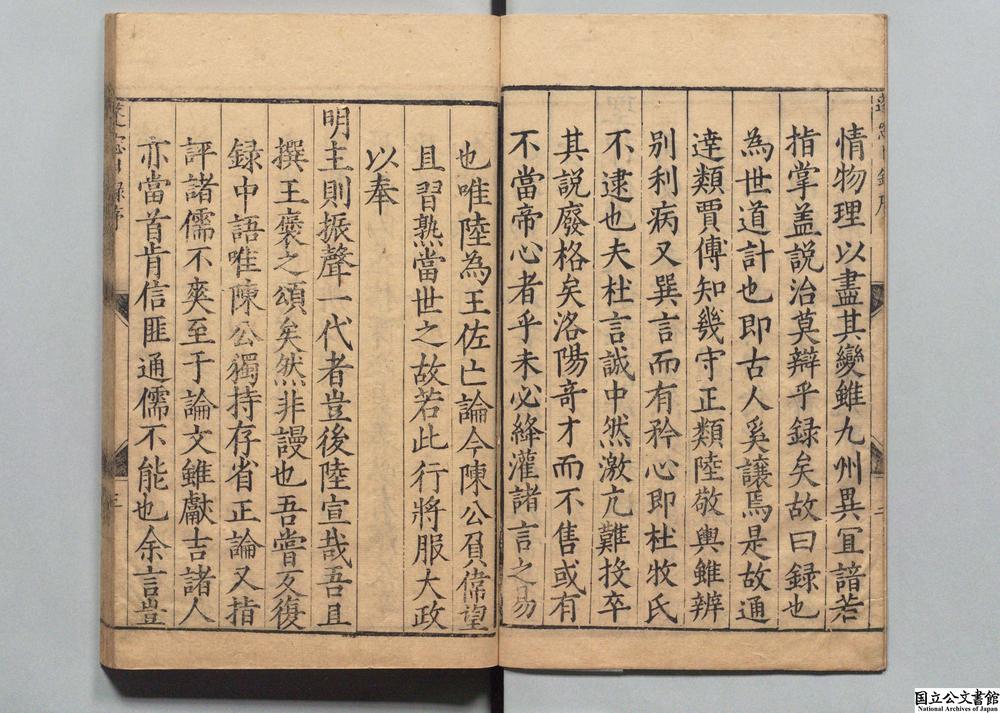 情物理以盡其變雖九州異冝諳若
指掌盖説治莫辯乎録矣故曰録也
為世道計也即古人奚譲焉是故通
達類賈傅知幾守正類陸敬輿雖辨
別利病又巽言而有矜心即杜牧氏
不逮也夫杜言誠中然激亢難投卒
其説廢格矣洛陽竒才而不售或有
不當帝心者乎未必絳灌諸言之易
也唯陸為王佐亡論今陳公負偉望
且習熟當世之故若此行將服大政
以奉
明主則振聲一代者豈後陸宣哉吾且
撰王褒之頌矣然非謾也吾嘗反復
録中語唯陳公獨持存省正論又指
評諸儒不爽至于論文雖獻吉諸人
亦當首肯信匪通儒不能也余言豈
国立公文書館
National Archives of Japan